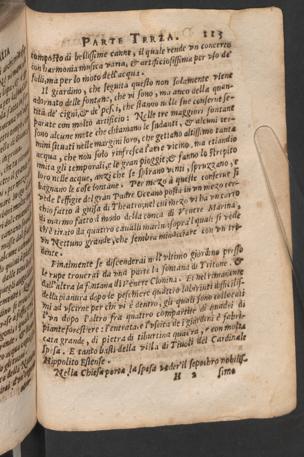 PARTE TERZA. 115
composto di bellissime canne, il quale rende vn concerto
con harmonia musica varia, & artificiosissima per vso de'
folli, ma per lo moto dell'acqua.
Il giardino, che seguita questo non solamente viene
adornato delle fontane, che vi sono, ma anco della quan-
tità de' cigni, & de' pesci, che stanno nelle sue conserue se-
parate con molto artificio: Nelle tre maggiori fontane
sono alcune mete che chiamano le sudanti, & alcuni ter-
mini situati nelli margini loro, che gettano altissimo tanta
acqua, che non solo rinfresca l'aere vicino, ma
gli temporali, e le gran pioggie, & fanno lo strepito
loro nelle acque, anzi che se spirano venti, spruzzano, e
bagnano le cose lontane. Per mezo à queste conserue si
vede l'effigie del gran Padre Oceano posta in vn mezo cer-
chio fatto à guisa di Theatro, nel cui mezo vi hà vn carro
di marmo fatto à modo della conca di Venere Marina,
ch'è tirato da quattro caualli marini sopra'l quale si vede
vn Nettuno grande, che sembra minacciare con vn tri-
dente.
Finalmente se discenderai nell'vltimo giardino presso
le rupe trouerai da vna parte la fontana di Tritone, &
dall'altra la fontana di Venere Clonina. Et nel rimanente
della pianura dopo le peschiere quattro labirinti difficilis-
mi ad vscirne per chi vi è dentro, gli quali sono collocati
l'vn dopo l'altro fra quattro compartite di
piante forestiere: l'entrata e l'vscita de i giardini è fabri-
cata grande, di pietra di tiburtina quadra, e con molta
spesa. E tanto basti della villa di Tiuoli del Cardinale
Hippolito Estense.
Nella Chiesa porta la spesa veder'il sepolcro nobilis-
H 2 simo